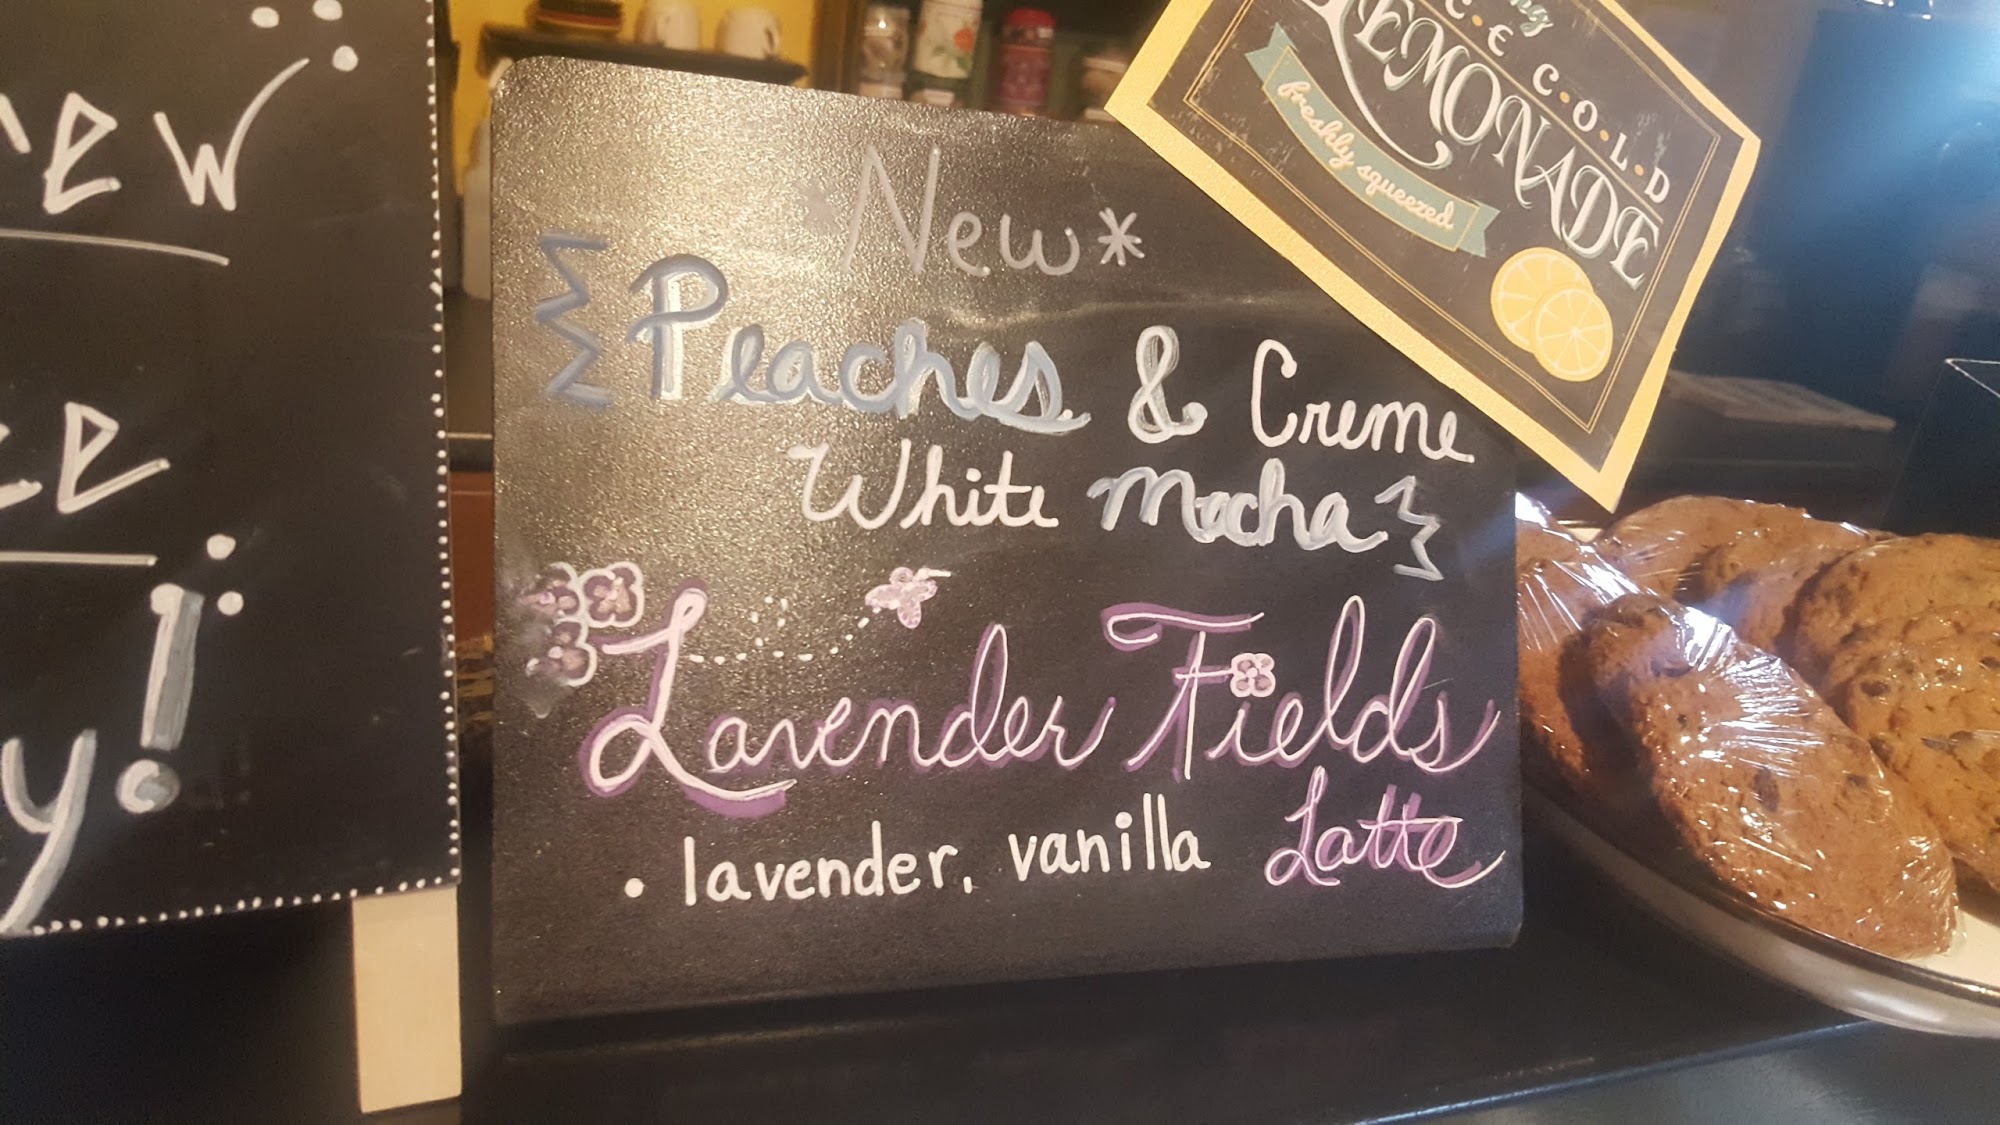 New*
Peaches & Creme
White Mocha
Lavender Fields
Latte
• lavender, vanilla
C.E C.O.L.D
LEMONADE
freshly squeezed